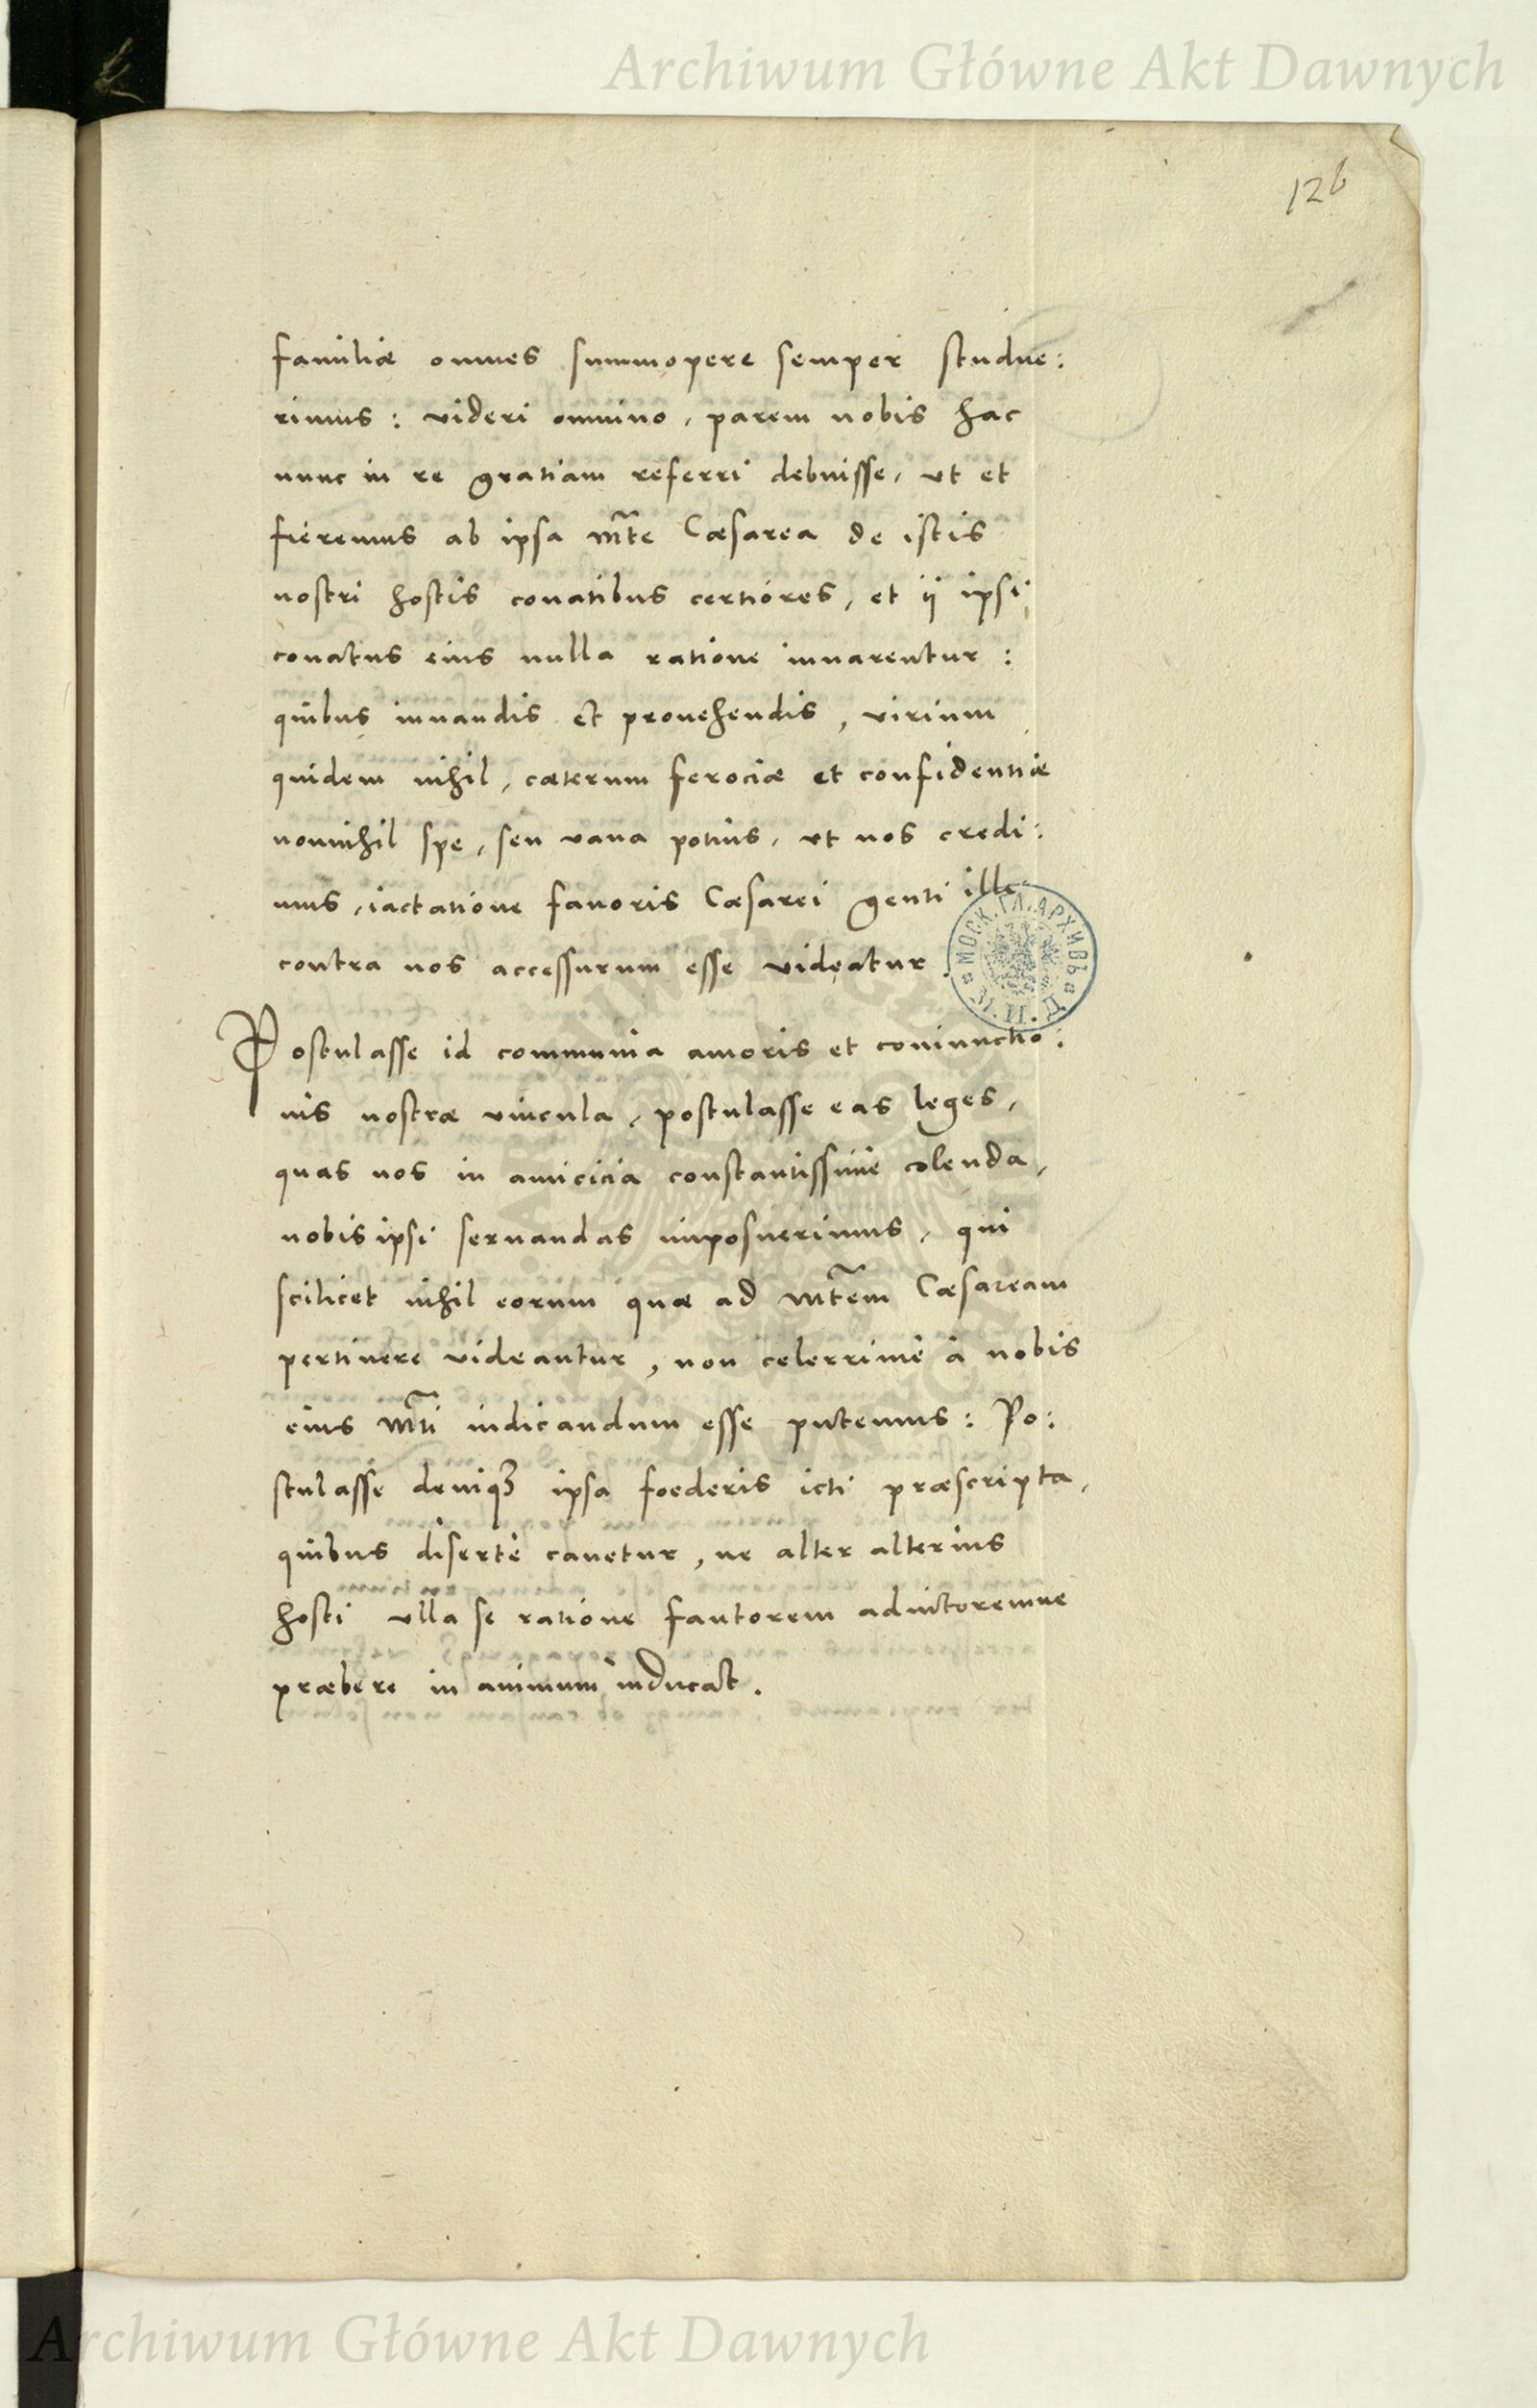 Archiwum Główne Akt Dawnych
126
familiæ omnes summopere semper studue:
rimus: videri omnino, parem nobis hac
nunc in re gratiam referri debuisse, vt et
fieremus ab ipsa Mt̃e Cæsarea de istis
nostri hostis conatibus certiores, et ij ipsi
conatus eius nulla ratione iuuarentur:
quibus iuuandis et prouehendis, virium
quidem nihil, cæterum ferociæ et confidentiæ
nonnihil spe, seu vana potius, vt nos credi:
mus, iactatione fauoris Cæsarei genti ille
contra nos accessurum esse videatur.
МОСК. ГЛ. АРХИВЪ
Postulasse id communia amoris et coniunctio:
nis nostræ vincula, postulasse eas leges,
quas nos in amicicia constantissime colenda,
nobis ipsi seruandas imposuerimus, qui
scilicet nihil eorum quæ ad Mt̃em Cæsaream
pertinere videantur, non celerrimè à nobis
eius Mt̃i indicandum esse putemus: Po:
stulasse deniqȝ ipsa foederis icti præscripta,
quibus disertè cauetur, ne alter alterius
hosti vlla se ratione fautorem adiutoremue
præbere in animum inducat.
Archiwum Główne Akt Dawnych